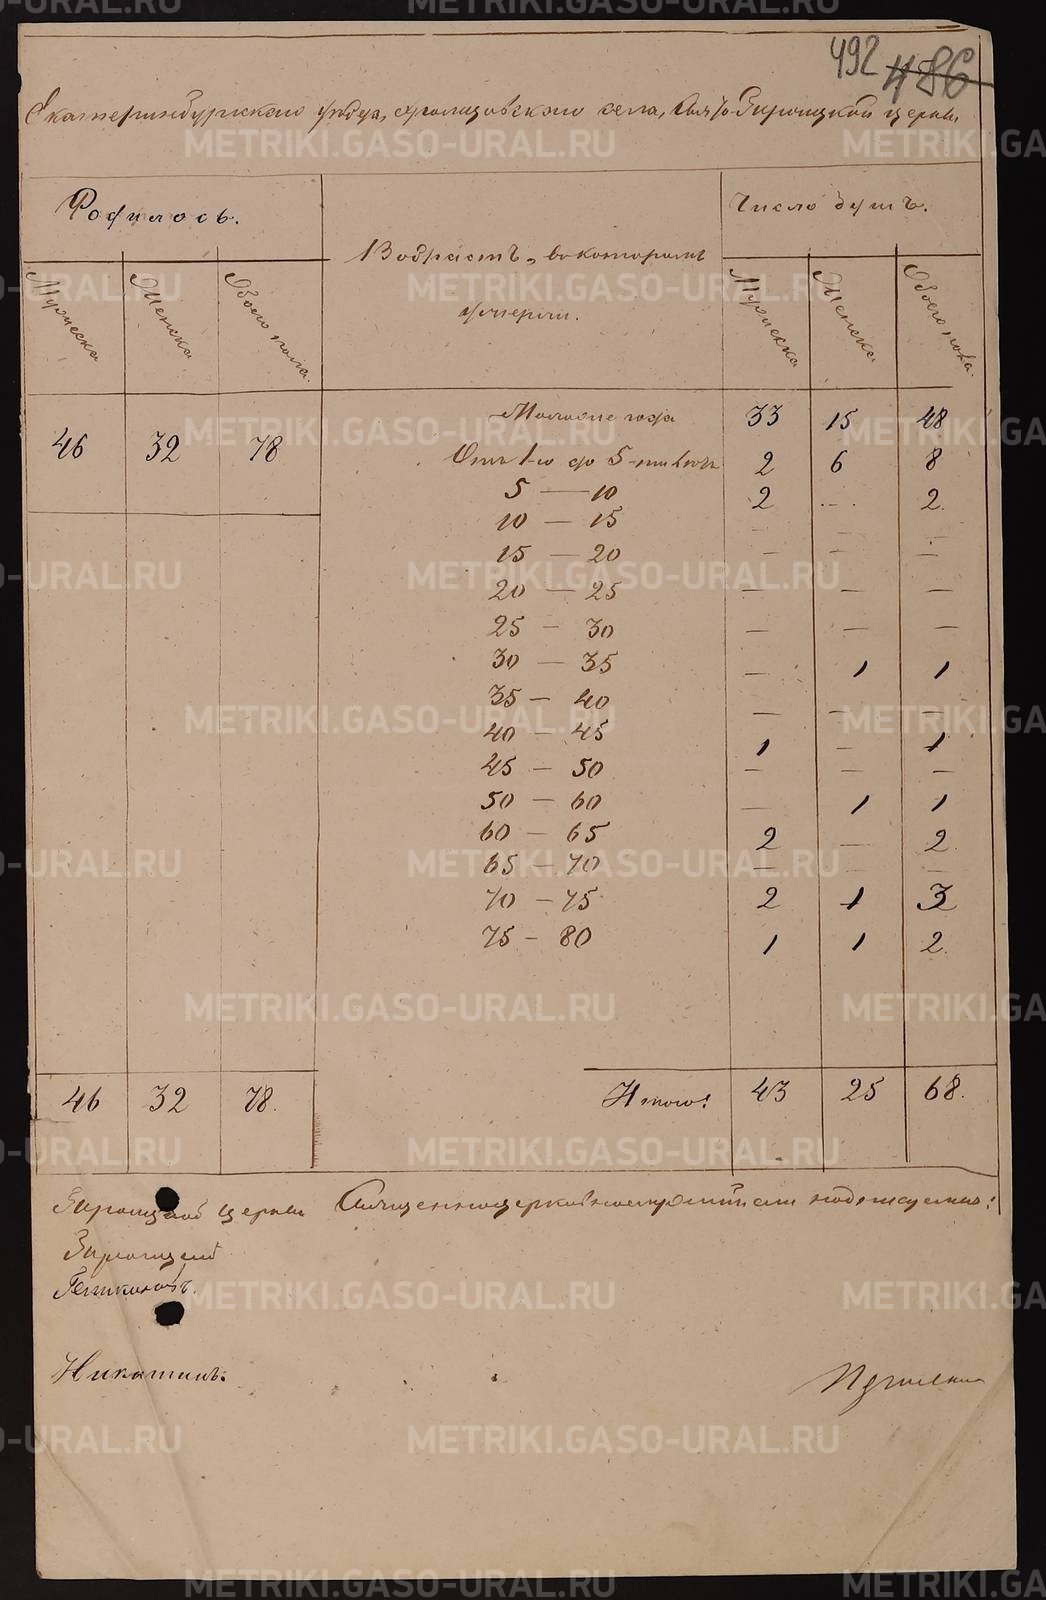 492 486
Екатеринбургскаго уѣзда, села, церкви
Родилось.
Мужеска
Женска
Обоего пола.
Возрастъ, въ которомъ
умерли.
Число душъ.
Мужеска
Женска
Обоего пола.
46 32 78
года 33 15 48
Отъ 1-го до 5-ти лѣтъ 2 6 8
5 — 10 2 — 2.
10 — 15 — — —
15 — 20 — — —
20 — 25 — — —
25 — 30 — — —
30 — 35 — 1 1
35 — 40 — — —
40 — 45 1 — 1
45 — 50 — — —
50 — 60 — 1 1
60 — 65 2 — 2.
65 — 70 — — —
70 — 75 2 1 3
75 — 80 1 1 2.
46 32 78. Итого: 43 25 68.
церкви
Никитинъ.
METRIKI.GASO-URAL.RU